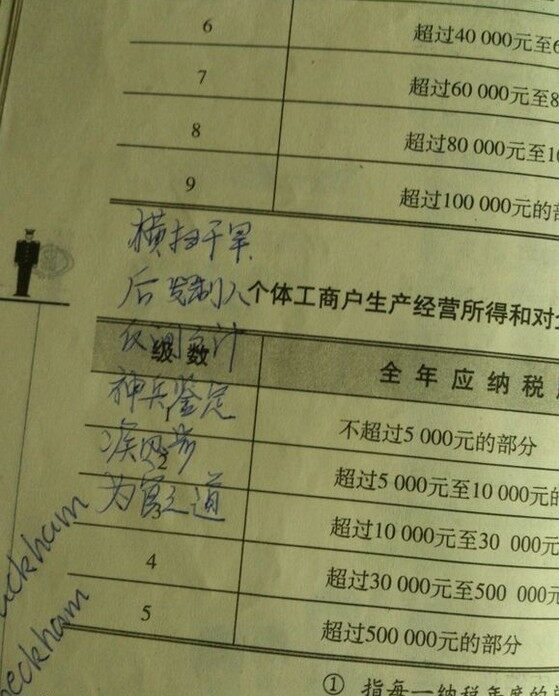 6 超过40 000元至6
7 超过60 000元至8
8 超过80 000元至10
9 超过100 000元的部
横扫千军
后发制人
个体工商户生产经营所得和对企
级数 全年应纳税
神兵鉴定
1 不超过5 000元的部分
2 超过5 000元至10 000元的
为官之道
3 超过10 000元至30 000元
4 超过30 000元至500 000元
5 超过500 000元的部分
① 指每一纳税年度的
eckham
eckham